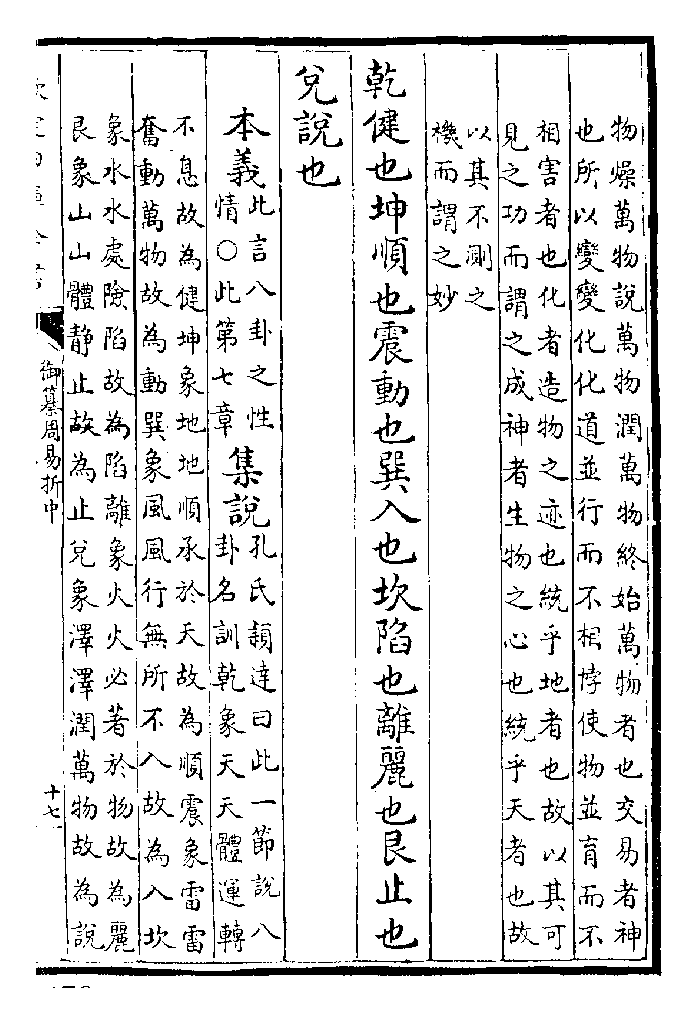 物燥萬物說萬物潤萬物終始萬物者也交易者神
也所以變變化化道並行而不相悖使物並育而不
相害者也化者造物之迹也統乎地者也故以其可
見之功而謂之成神者生物之心也統乎天者也故
以其不測之
機而謂之妙
乾健也坤順也震動也巽入也坎陷也離麗也艮止也
兌說也
本義此言八卦之性
情○此第七章集說孔氏穎達曰此一節說八
卦名訓乾象天天體運轉
不息故為健坤象地地順承於天故為順震象雷雷
奮動萬物故為動巽象風風行無所不入故為入坎
象水水處險陷故為陷離象火火必著於物故為麗
艮象山山體靜止故為止兌象澤澤潤萬物故為說
御纂周易折中
十七